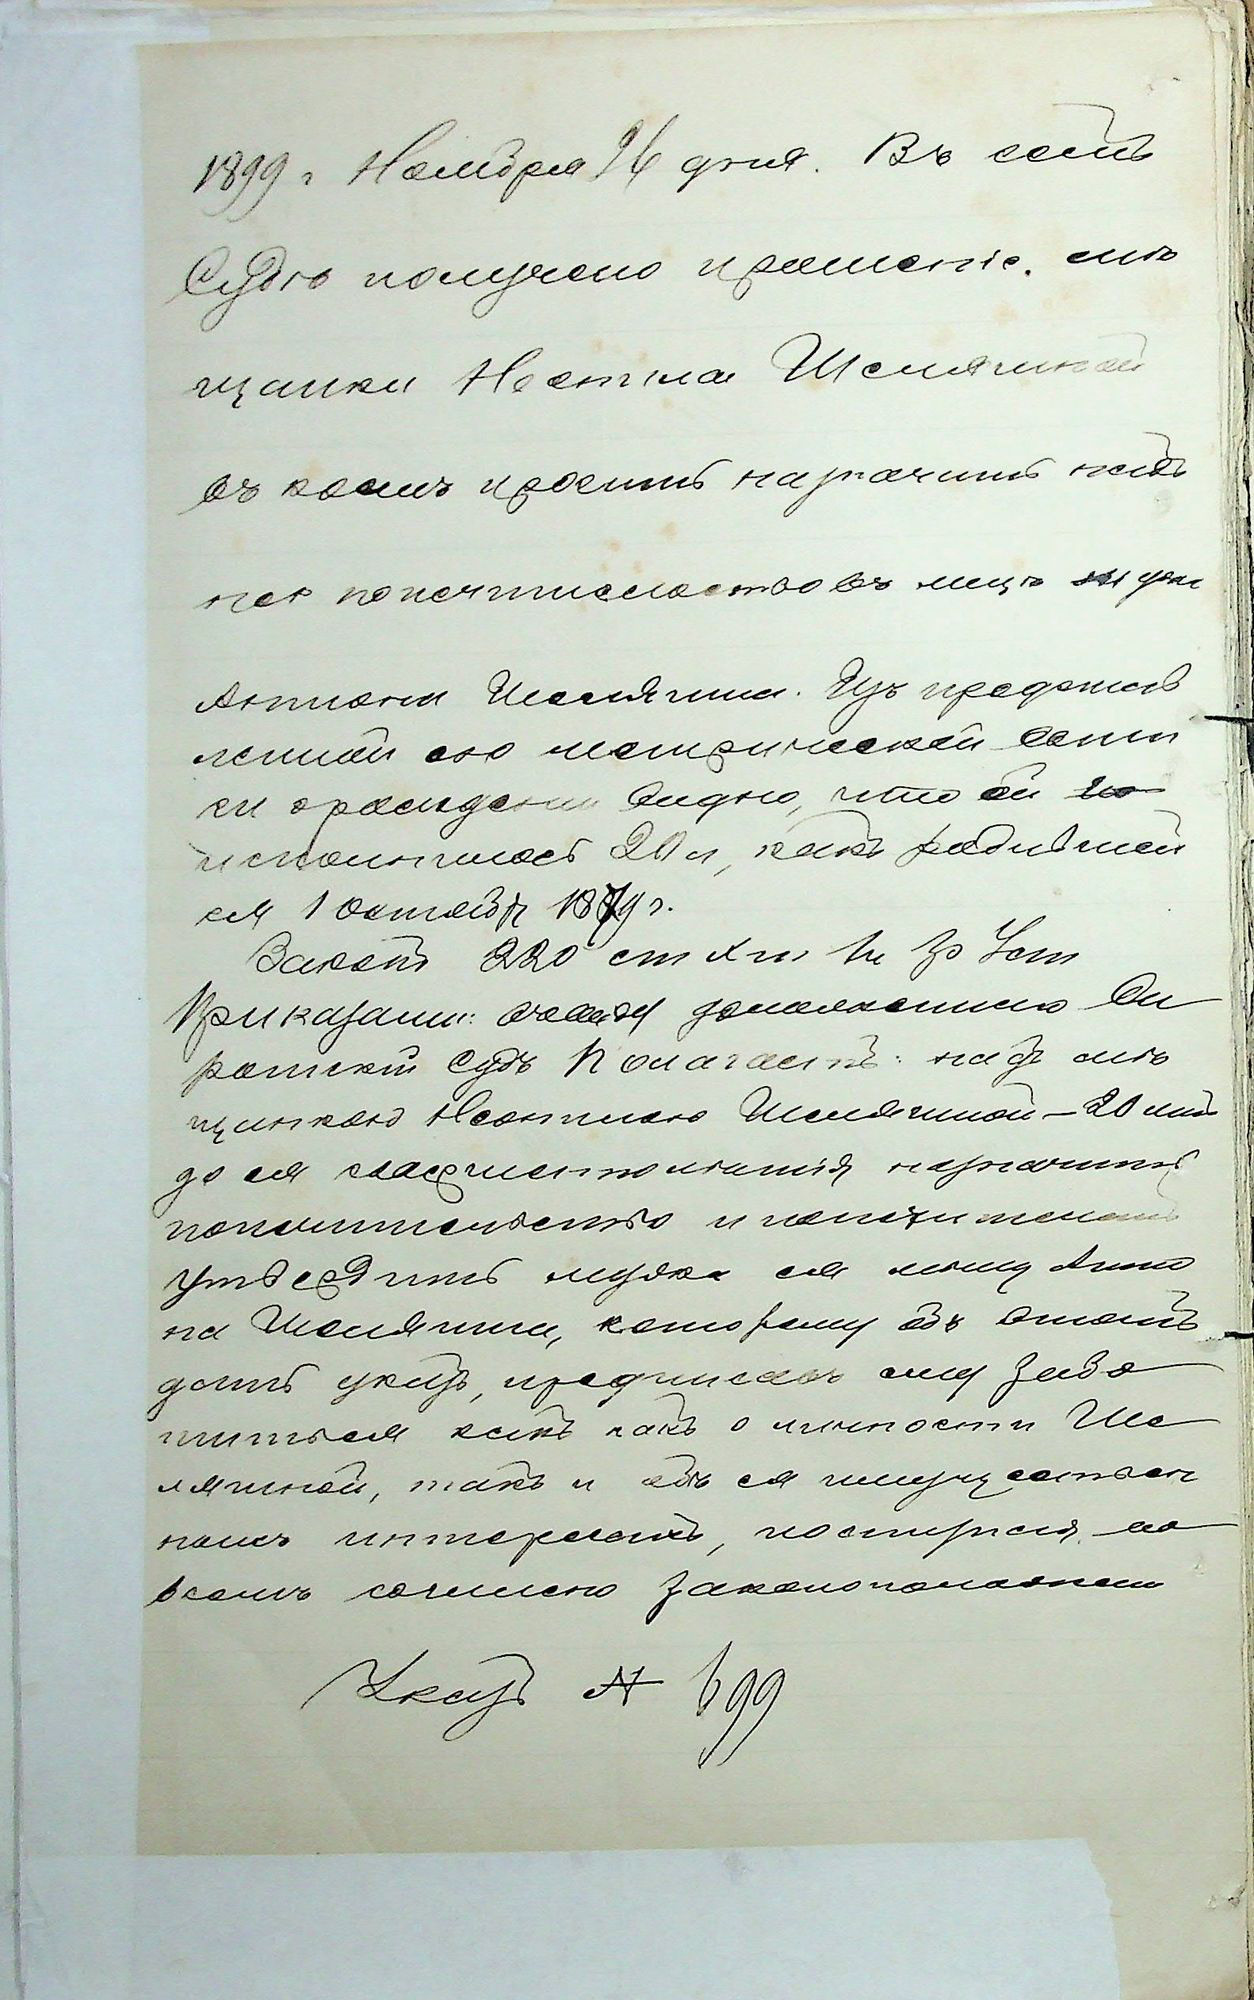 1899 г Ноября 26 дня. Въ семъ
Судѣ получено прошеніе мѣ
щанки Неонилы Шемякиной
въ коемъ проситъ назначить надъ
нею попечительство въ лицѣ мужа
Антона Шемякина. Изъ представ
ленной ею метрической выпи
си о рожденіи видно, что ей
исполнилось 20 л, какъ родившей
ся 1 октября 1879 г.
Законъ 220 ст X т 1 ч Зр Уст
Приказали: Сиротскій
Судъ Полагаетъ: надъ мѣ
щанкою Неонилою Шемякиной – 20 лѣтъ
до ея совершеннолѣтія назначить
попечительство и попечителемъ
утвердить мужа ея мѣщ Анто
на Шемякина, которому объ этомъ
дать указъ, предписавъ ему забо
титься какъ о личности Ше
мякиной, такъ и объ ея имуществен
номъ интересѣ, поступая во
всемъ согласно законоположенію
Указъ № 699